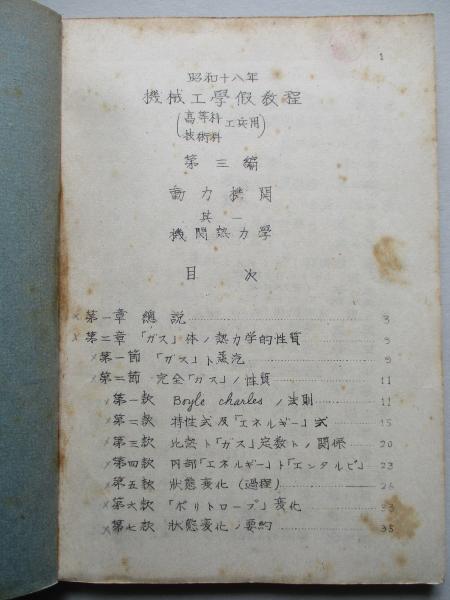 1
昭和十八年
機械工學假教程
(高等科 技術科 工兵用)
第三編
動力機関
其一
機関熱力學
目次
×第一章 總説 3
×第二章 「ガス」体ノ熱力学的性質 9
×第一節 「ガス」ト蒸汽 9
×第二節 完全「ガス」ノ性質 11
×第一款 Boyle charlesノ法則 11
×第二款 特性式及「エネルギー」式 15
×第三款 比熱ト「ガス」定数トノ関係 20
×第四款 内部「エネルギー」ト「エンタルピ」 23
×第五款 狀態変化(過程) 26
×第六款 「ポリトロープ」変化 33
×第七款 狀態変化ノ要約 35